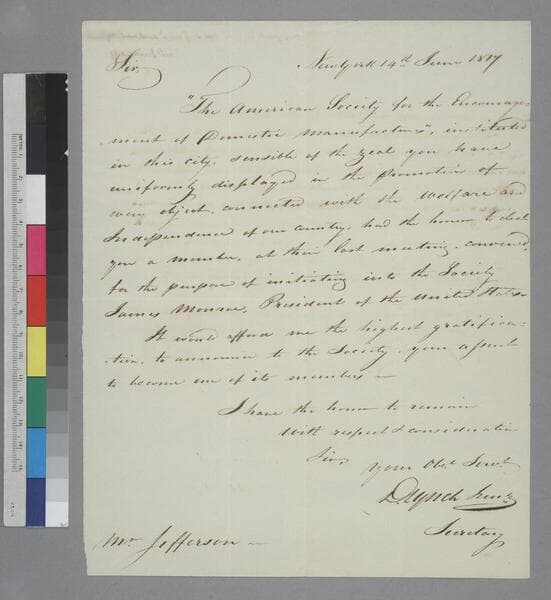 Sir,
New York 14th June 1817
"The American Society for the Encourage-
ment of Domestic Manufactures", instituted
in this city, sensible of the zeal you have
uniformly displayed in the promotion of
every object, connected with the welfare and
Independence of our country, had the honor to elect
you a member, at their last meeting convened,
for the purpose of initiating into the Society
James Monroe, President of the United States.
It would afford me the highest gratifica-
-tion, to announce to the Society your assent
to become one of its members —
I have the honor to remain
with respect & consideration
Sir,
Your Obt. Servt
D Lynch Junr
Secretary
Mr Jefferson —